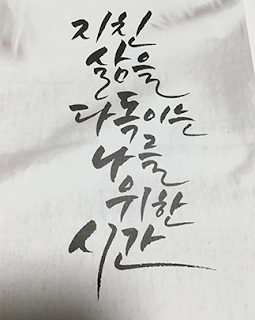 지친
삶을
다독이는
나를
위한
시간